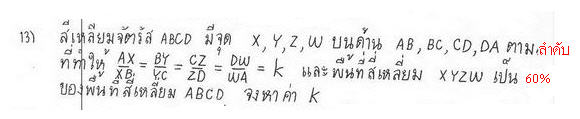 13) สี่เหลี่ยมจัตุรัส ABCD มีจุด X, Y, Z, W บนด้าน AB, BC, CD, DA ตามลำดับ
ที่ทำให้ AX/XB = BY/YC = CZ/ZD = DW/WA = k และพื้นที่สี่เหลี่ยม XYZW เป็น 60%
ของพื้นที่สี่เหลี่ยม ABCD จงหาค่า k